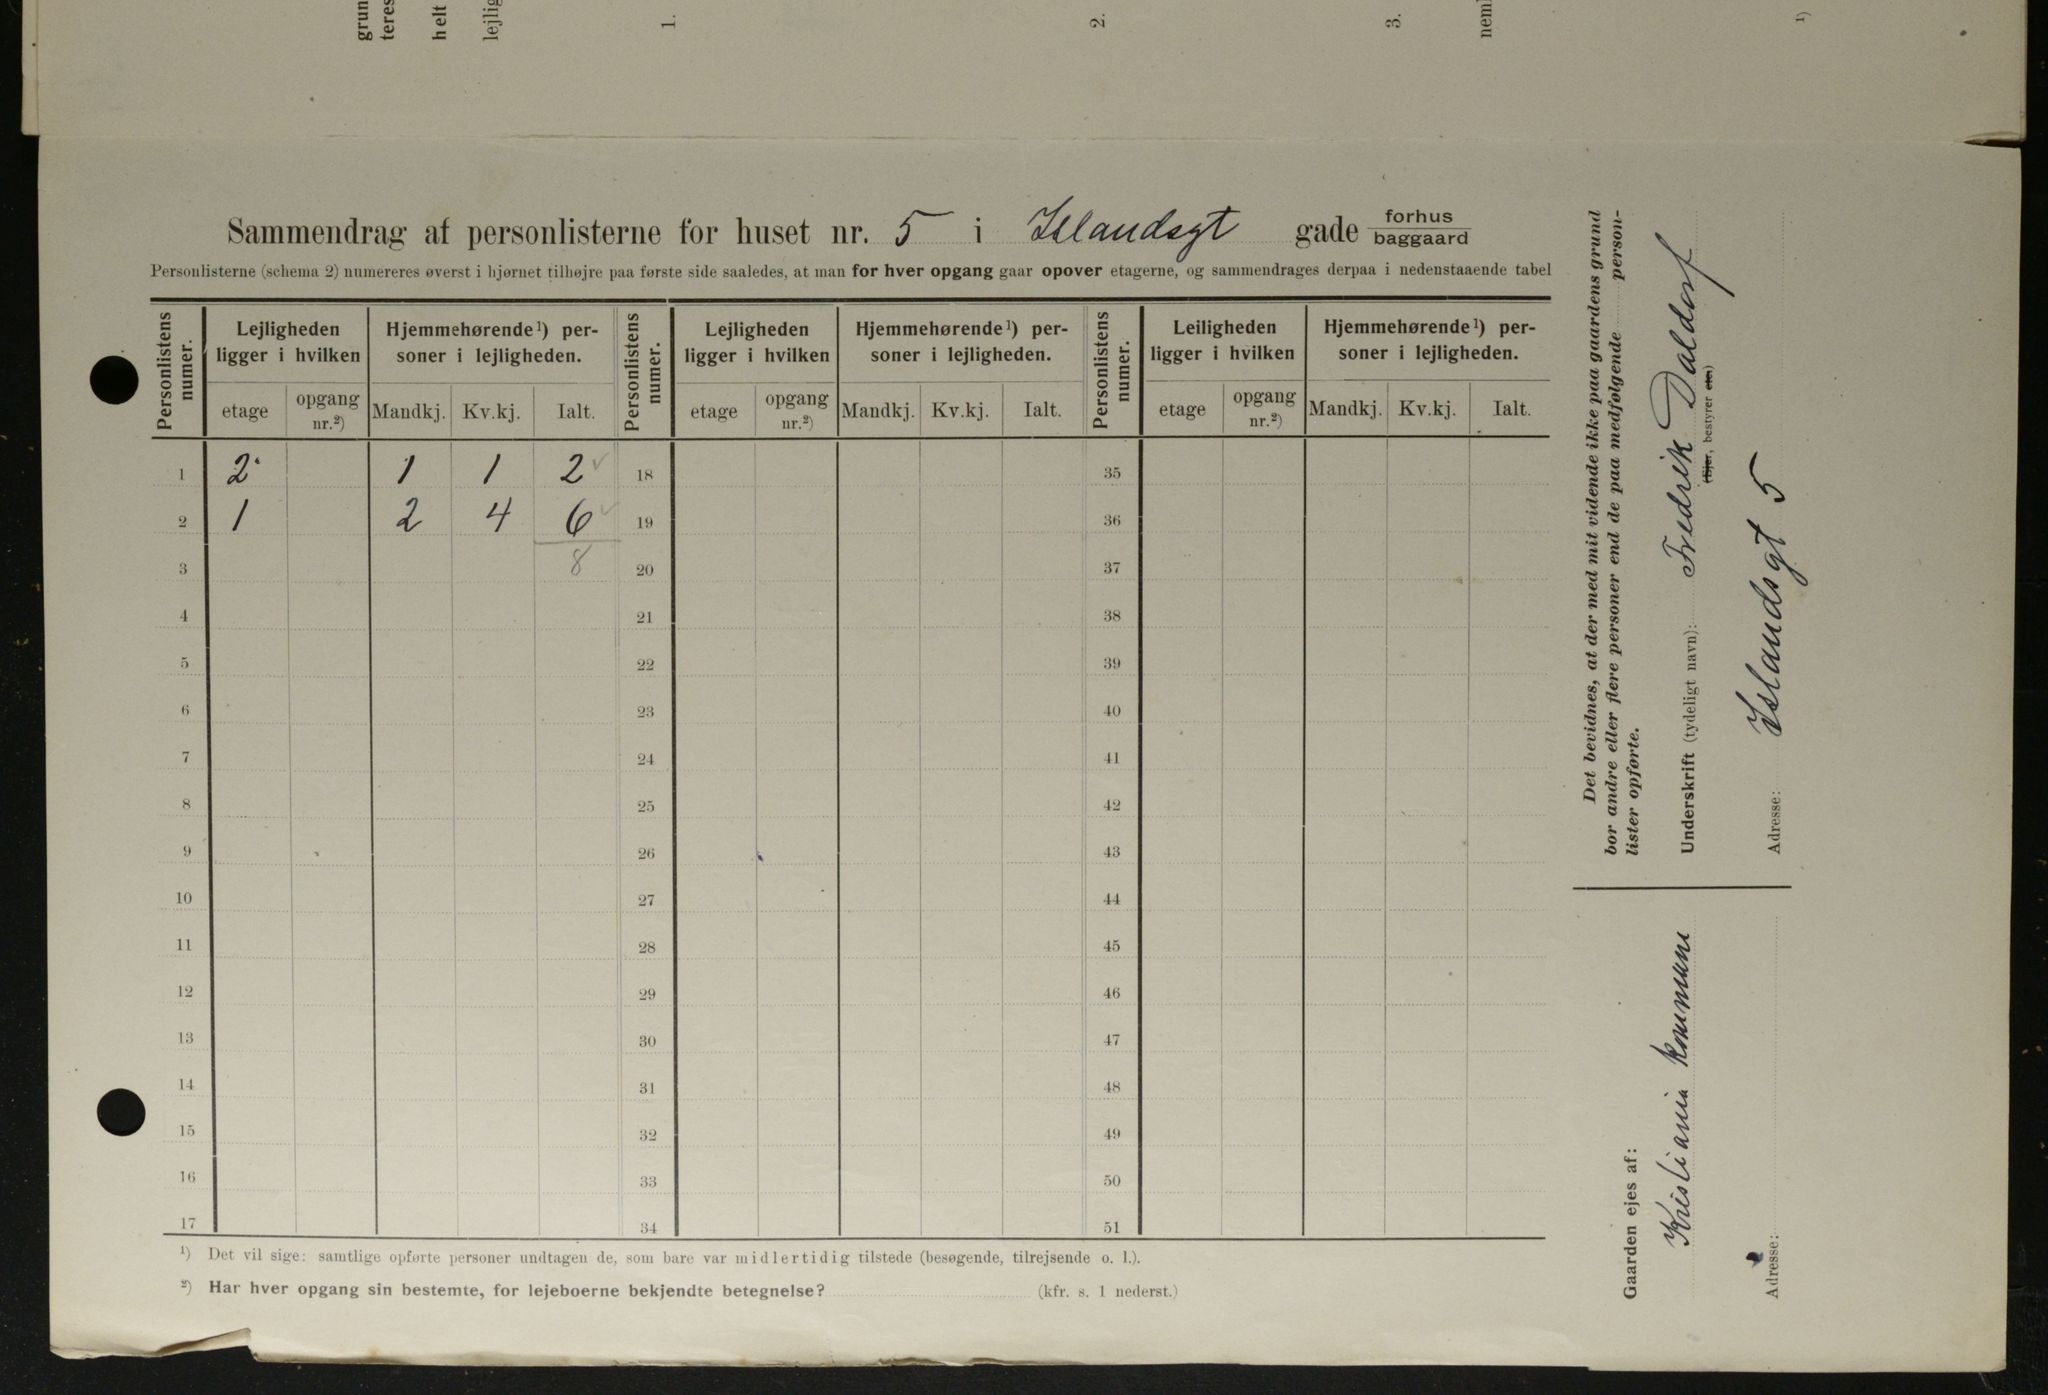 grun
teres
helt
lejlig
1.
2.
3.
nem
1)
Sammendrag af personlisterne for huset nr. 5 i Islandsgt gade forhus baggaard
Personlisterne (schema 2) numereres øverst i hjørnet tilhøjre paa første side saaledes, at man for hver opgang gaar opover etagerne, og sammendrages derpaa i nedenstaaende tabel
Personlistens numer. Lejligheden ligger i hvilken Hjemmehørende¹) personer i lejligheden. Personlistens numer. Lejligheden ligger i hvilken Hjemmehørende¹) personer i lejligheden. Personlistens numer. Leiligheden ligger i hvilken Hjemmehørende¹) personer i lejligheden.
etage opgang nr.²) Mandkj. Kv.kj. Ialt. etage opgang nr.²) Mandkj. Kv.kj. Ialt. etage opgang nr.²) Mandkj. Kv.kj. Ialt.
1 2. 1 1 2 ✓ 18 35
2 1 2 4 6 ✓ 19 36
3 8 20 37
4 21 38
5 22 39
6 23 40
7 24 41
8 25 42
9 26 43
10 27 44
11 28 45
12 29 46
13 30 47
14 31 48
15 32 49
16 33 50
17 34 51
¹) Det vil sige: samtlige opførte personer undtagen de, som bare var midlertidig tilstede (besøgende, tilrejsende o. l.).
²) Har hver opgang sin bestemte, for lejeboerne bekjendte betegnelse? (kfr. s. 1 nederst.)
Det bevidnes, at der med mit vidende ikke paa gaardens grund
bor andre eller flere personer end de paa medfølgende person-
lister opførte.
Underskrift (tydeligt navn): Fredrik Daldorf
(Ejer, bestyrer etc.)
Adresse: Islandsgt 5
Gaarden ejes af:
Kristiania kommune
Adresse: